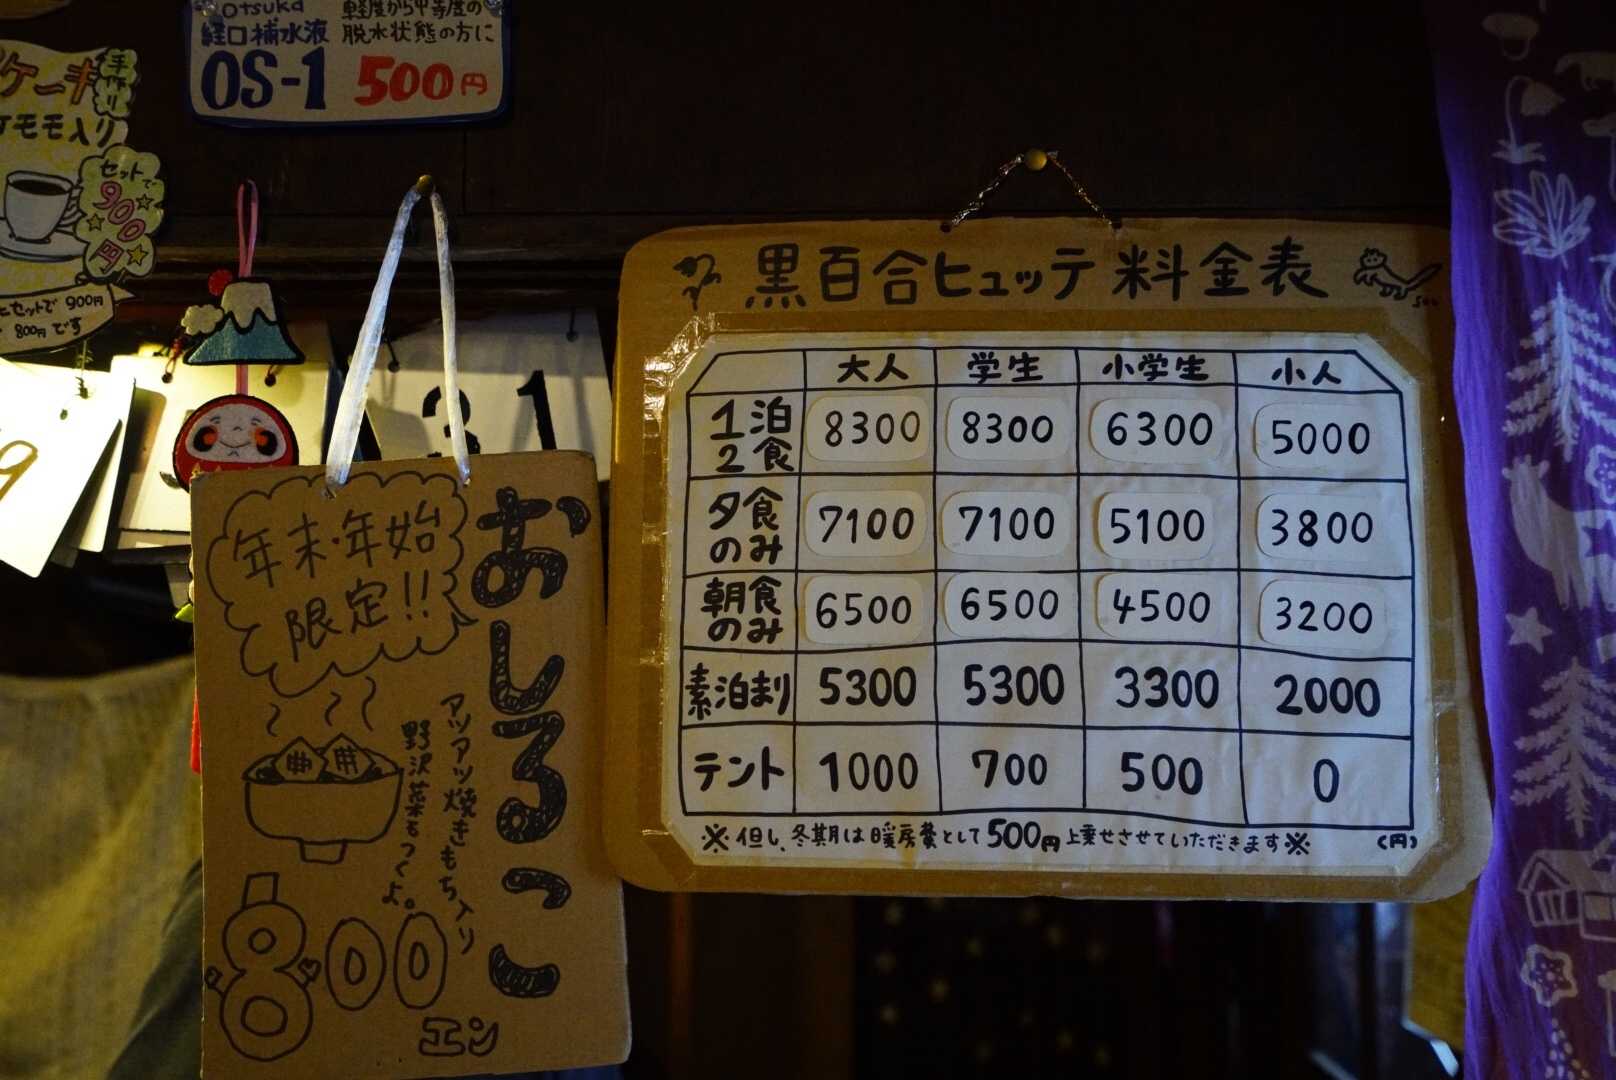 Otsuka 軽度から中等度の
経口補水液 脱水状態の方に
OS-1 500円
ケーキ
手作り
ケモモ入り
セットで
900
円
ヒセットで 900円
800円です
9
31
年末・年始
限定!!
おしるこ
アツアツ焼きもち入り
野沢菜もつくよ。
800
エン
黒百合ヒュッテ 料金表
大人 学生 小学生 小人
1泊2食 8300 8300 6300 5000
夕食のみ 7100 7100 5100 3800
朝食のみ 6500 6500 4500 3200
素泊まり 5300 5300 3300 2000
テント 1000 700 500 0
※但し、冬期は暖房費として500円上乗せさせていただきます※ (円)